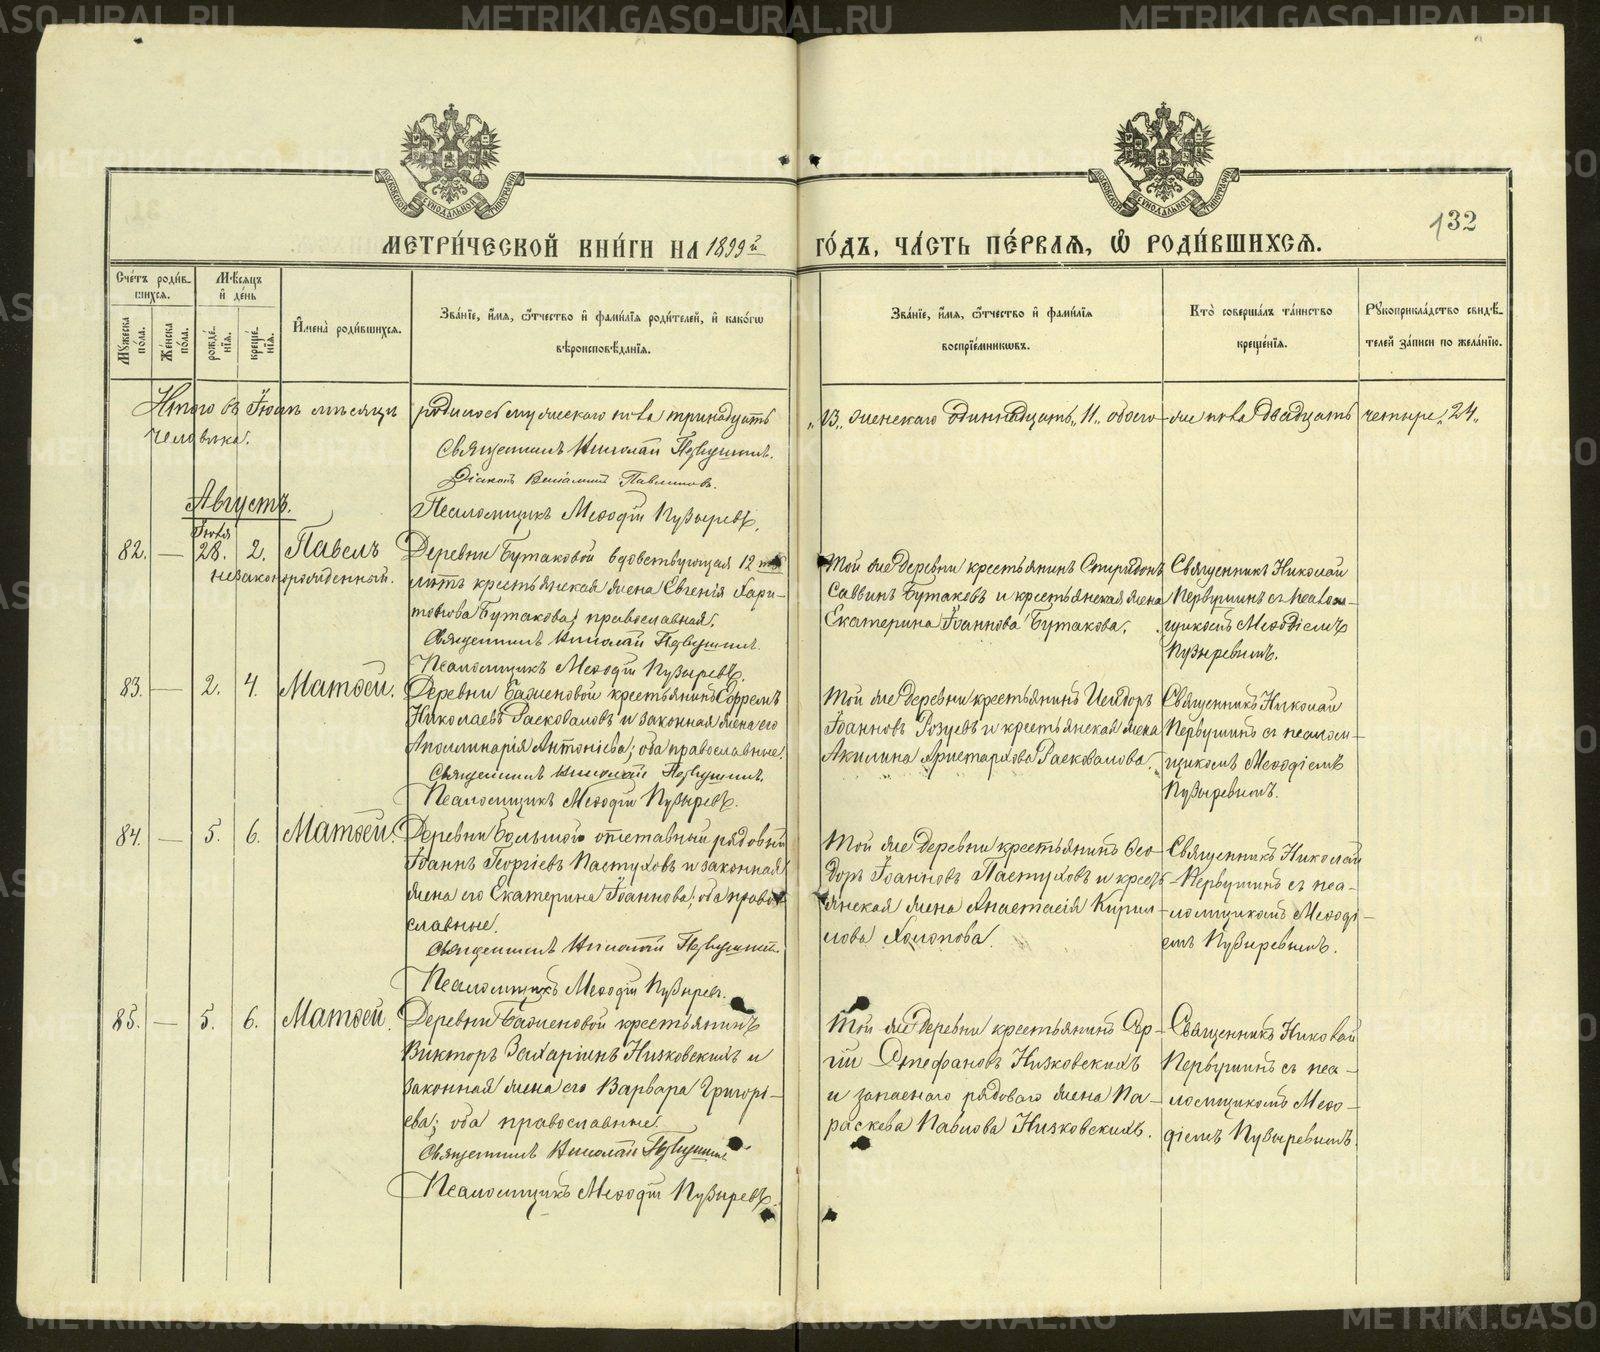 МЕТРИ́ЧЕСКОЙ КНИ́ГИ НА 1899й ГО́ДЪ, ЧА́СТЬ ПЕ́РВАЯ, Ѡ҆ РОДИ́ВШИХСЯ.
132
МОСКОВСКОЙ СѴНОДАЛЬНОЙ ТИПОГРАФІИ
МОСКОВСКОЙ СѴНОДАЛЬНОЙ ТИПОГРАФІИ
Сче́тъ роди́в-
шихся.
Мꙋ́жеска по́ла.
Же́нска по́ла.
Мѣ́сяцъ
и҆ де́нь
рожде́-
нія.
креще́-
нія.
И҆мена̀ роди́вшихся.
Зва́ніе, и҆́мя, ѻ҆́тчество и҆ фами́лія роди́телей, и҆ како́гѡ
вѣроисповѣ́данія.
Зва́ніе, и҆́мя, ѻ҆́тчество и҆ фами́лія
воспріе́мникѡвъ.
Кто̀ соверша́лъ та́инство
креще́нія.
Рꙋкоприкла́дство свидѣ́-
телей за́писи по жела́нію.
Итого въ Іюлѣ мѣсяцѣ родилось мужескаго пола тринадцать „13„ женскаго одиннадцать „11„ обоего же пола двадцать четыре „24„
человѣка.
Священникъ Николай Первушинъ.
Діаконъ Веніаминъ Павлиновъ.
Псаломщикъ Меѳодій Пузыревъ.
Августъ.
82. — Іюля 28. 2. Павелъ
незаконорожденный.
Деревни Бутаковой вдовствующая 12
лѣтъ крестьянская жена Евгенія Хари-
тонова Бутакова; православная.
Священникъ Николай Первушинъ.
Псаломщикъ Меѳодій Пузыревъ.
Той же деревни крестьянинъ Спиридонъ
Саввинъ Бутаковъ и крестьянская жена
Екатерина Іоаннова Бутакова.
Священникъ Николай
Первушинъ съ псалом-
щикомъ Меѳодіемъ
Пузыревымъ.
83. — 2. 4. Матѳей.
Деревни Баженовой крестьянинъ Ефремъ
Николаевъ Расковаловъ и законная жена его
Аполлинарія Антоніева; оба православные.
Священникъ Николай Первушинъ.
Псаломщикъ Меѳодій Пузыревъ.
Той же деревни крестьянинъ Исидоръ
Іоанновъ Розуевъ и крестьянская жена
Акилина Аристархова Расковалова.
Священникъ Николай
Первушинъ съ псалом-
щикомъ Меѳодіемъ
Пузыревымъ.
84. — 5. 6. Матѳей.
Деревни Большого отставный рядовый
Іоаннъ Георгіевъ Пастуховъ и законная
жена его Екатерина Іоаннова; оба право-
славные.
Священникъ Николай Первушинъ.
Псаломщикъ Меѳодій Пузыревъ.
Той же деревни крестьянинъ Ѳео-
доръ Іоанновъ Пастуховъ и кресть-
янская жена Анастасія Кирил-
лова Холопова.
Священникъ Николай
Первушинъ съ пса-
ломщикомъ Меѳоді-
емъ Пузыревымъ.
85. — 5. 6. Матѳей.
Деревни Баженовой крестьянинъ
Викторъ Захаріинъ Низковскихъ и
законная жена его Варвара Григорі-
ева; оба православные.
Священникъ Николай Первушинъ
Псаломщикъ Меѳодій Пузыревъ.
Той же деревни крестьянинъ Сер-
гій Стефановъ Низковскихъ
и запаснаго рядоваго жена Па-
раскева Павлова Низковскихъ.
Священникъ Николай
Первушинъ съ пса-
ломщикомъ Меѳо-
діемъ Пузыревымъ.
METRIKI.GASO-URAL.RU